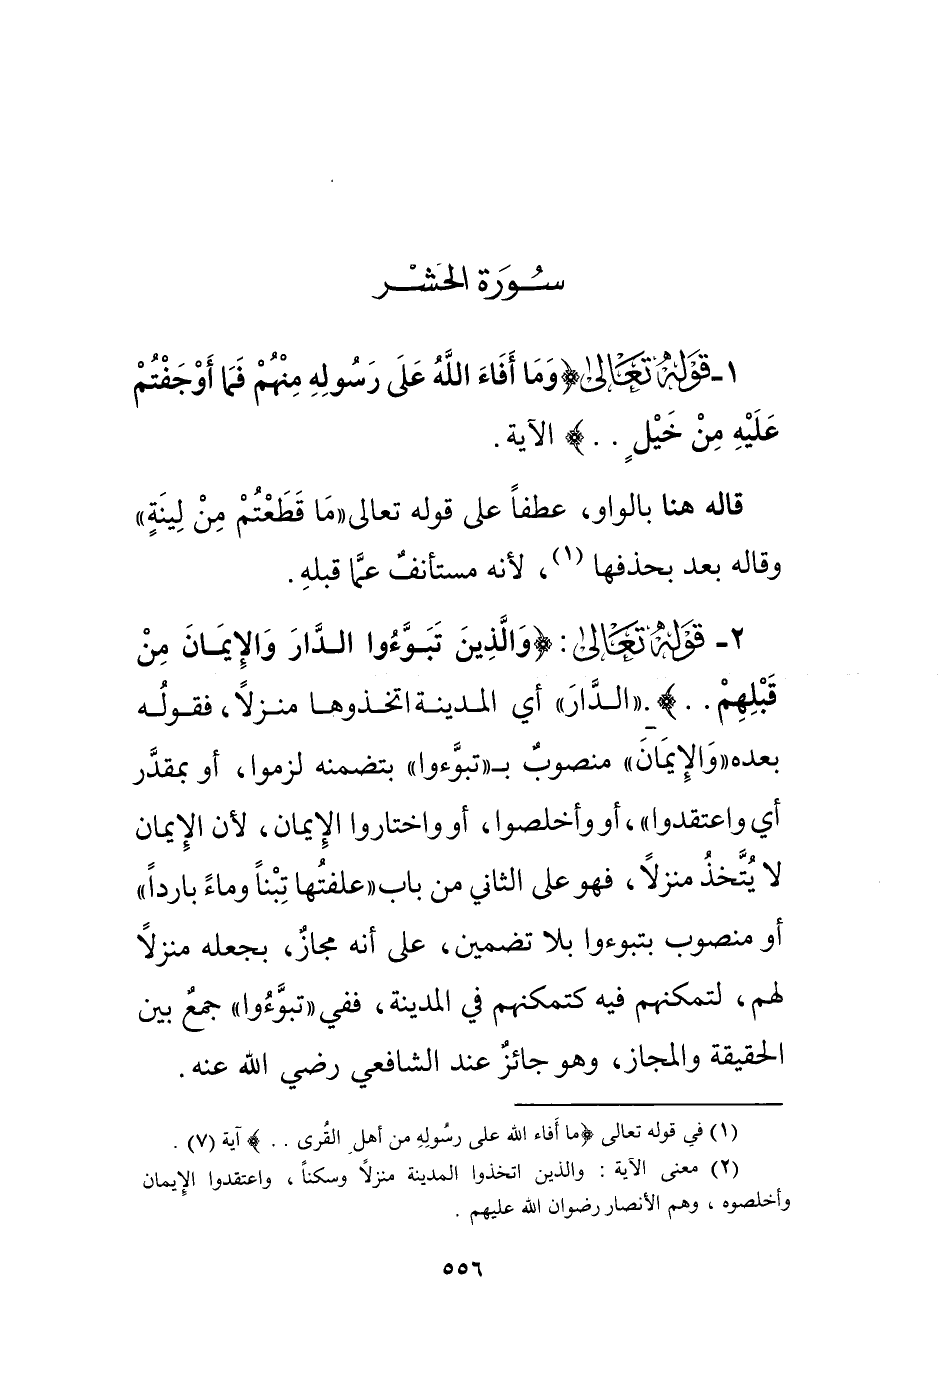 سُورَة الحَشْر
١ـ قَوْلُهُ تَعَالىٰ ﴿وَمَا أَفَاءَ اللَّهُ عَلَى رَسُولِهِ مِنْهُمْ فَمَا أَوْجَفْتُمْ
عَلَيْهِ مِنْ خَيْلٍ . . ﴾ الآية .
قاله هنا بالواو، عطفاً على قوله تعالى «مَا قَطَعْتُمْ مِنْ لِينَةٍ»
وقاله بعد بحذفها (١)، لأنه مستأنفٌ عمَّا قبلهِ .
٢ـ قَوْلُهُ تَعَالىٰ : ﴿وَالَّذِينَ تَبَوَّءُوا الدَّارَ وَالإِيمَانَ مِنْ
قَبْلِهِمْ . . ﴾ . «الدَّارَ» أي المدينة اتخذوها منزلاً ، فقولُه
بعده «وَالإِيمَانَ» منصوبٌ بـ«تبوَّءوا» بتضمنه لزموا، أو بمقدَّر
أي واعتقدوا»، أو وأخلصوا، أو واختاروا الإِيمان، لأن الإِيمان
لا يُتَّخذُ منزلاً، فهو على الثاني من باب «علفتُها تِبْناً وماءً بارداً»
أو منصوب بتبوءوا بلا تضمين، على أنه مجازٌ، بجعله منزلاً
لهم، لتمكنهم فيه كتمكنهم في المدينة، ففي «تبوَّءُوا» جمعٌ بين
الحقيقة والمجاز، وهو جائزٌ عند الشافعي رضي الله عنه .
(١) في قوله تعالى ﴿ما أَفاء الله على رسُولِهِ من أهلِ القُرى . . ﴾ آية (٧) .
(٢) معنى الآية : والذين اتخذوا المدينة منزلاً وسكناً ، واعتقدوا الإِيمان
وأخلصوه ، وهم الأنصار رضوان الله عليهم .
٥٥٦